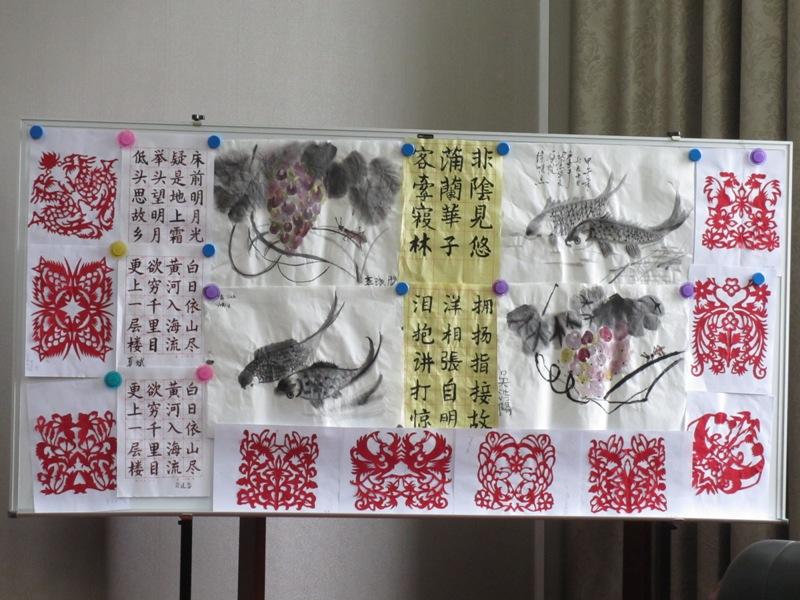 床前明月光
疑是地上霜
举头望明月
低头思故乡
白日依山尽
黄河入海流
欲穷千里目
更上一层楼
白日依山尽
黄河入海流
欲穷千里目
更上一层楼
非陰見悠
蒲蘭華子
林
拥扬指接故
洋相張自明
泪抱讲打惊